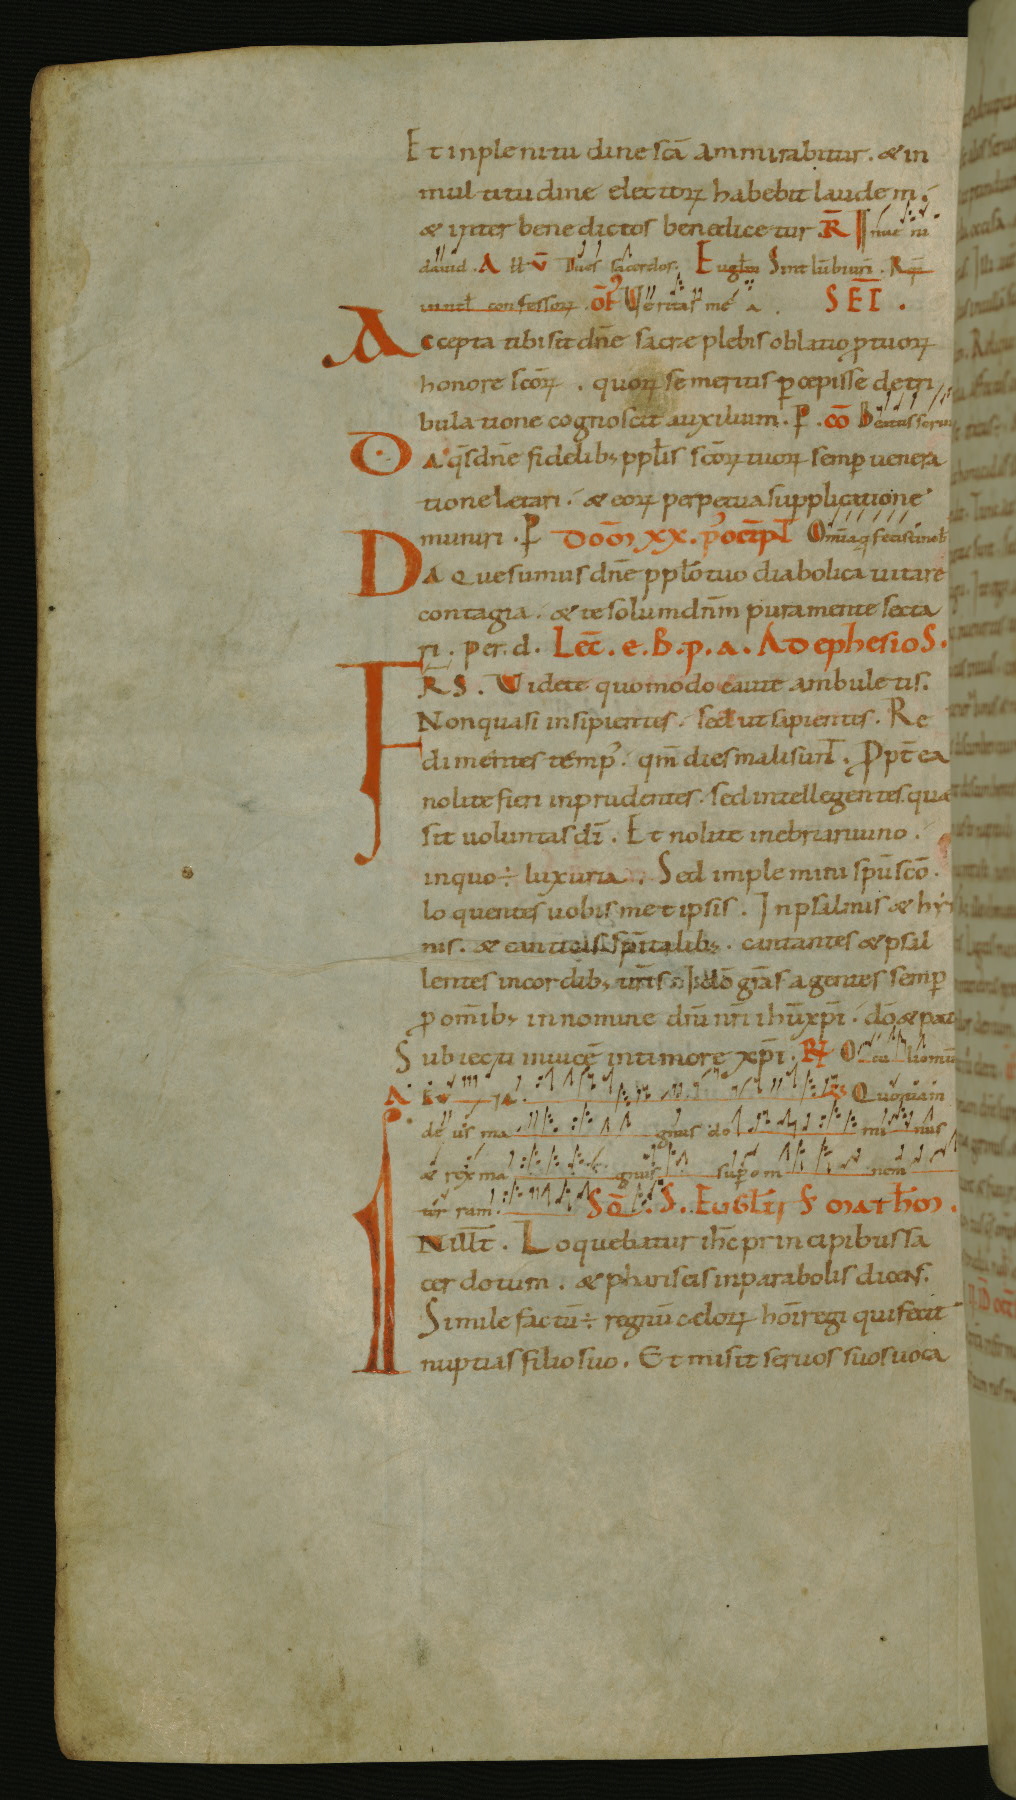 Et inplenitudine scā ammirabitur. & in
multitudine electorꝝ habebit laudem.
& inter benedictos benedicetur. R̄ Inueni
dauid. A ll v̄ Dñs sacerdos. Eugl̄m Sint lūbi uri. Req̄
unius confessorꝝ. of̄ Ueritas mea. SEC̄.
Accepta tibi sit dn̄e sacrae plebis oblatio ꝓ tuorꝝ
honore sc̄orꝝ. quorꝝ se meritis ꝑcepisse de tri
bulatione cognoscit auxilium. P. cō Beatus seruu
Da q̄s dn̄e fidelib; pplis sc̄orꝝ tuorꝝ semꝑ uenera
tione letari. & eorꝝ perpetua supplicatione
muniri. P Dom̄ XX. p' oct̄ pl̄ Om̄ia q̄ fecisti nob̄
Da quesumus dn̄e pplo tuo diabolica uitare
contagia. & te solum dn̄m pura mente secta
ri. per. d. Lec̄. e. B. p. a. Ad ephesioS.
FRS. Uidete quomodo caute ambuletis.
Non quasi insipientes. sed ut sapientes. Re
dimentes temp'. qm̄ dies mali sunt. Ppt̄ ea
nolite fieri inprudentes. sed intellegentes quae
sit uoluntas dī. Et nolite inebriari uino.
in quo ÷ luxuria. Sed implemini sp̄u sc̄o.
loquentes uobismetipsis. In psalmis & hym
nis. & canticis sp̄italib;. cantantes & psal
lentes in cordib; ur̄is dō gr̄as agentes semꝑ
ꝓ omīb; in nomine dn̄i nr̄i ihū xp̄i. dō & patri
Subiecti inuicē in timore xp̄i. R̄ Oculi omiū
A E v ia. Quoniam
deus magnus dominus
& rex magnus suꝑ omnem
terram. Sō. S. Eugl̄ii S matħm.
IN ill̄t. Loquebatur ihc̄ principibus sa
cerdotum. & phariseis in parabolis dicens.
Simile factū ÷ regnū celorꝝ hoī regi qui fecit
nuptias filio suo. Et misit seruos suos uoca